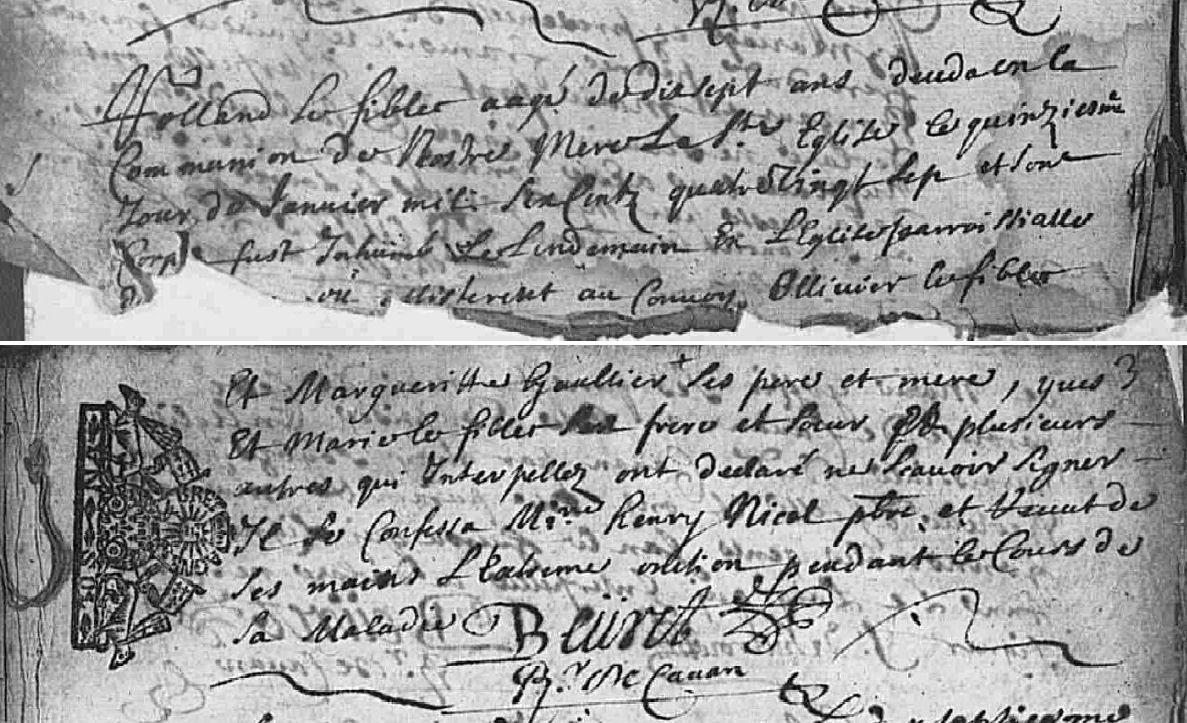 Rolland le fiblec aagé de dixsept ans deceda en la
Communion de Nostre Mere La Ste Eglise le quinziesme
Jour de Janvier mil six Centz quatre vingt sep et son
Corps fust Inhumé Le Lendemain En L'Eglise parroissialle
assisterent au Convoy Ollivier le fiblec
Et Margueritte Gaultier ses pere et mere, yves
Et Marie le fiblec son frere et soeur et plusieurs
autres qui Interpellez ont declaré ne scavoir signer
Il se Confessa Henry Nicol pbre et Receut de
ses mains L'Extreme onction pendant le Cours de
sa Maladie
Rr De Cavan